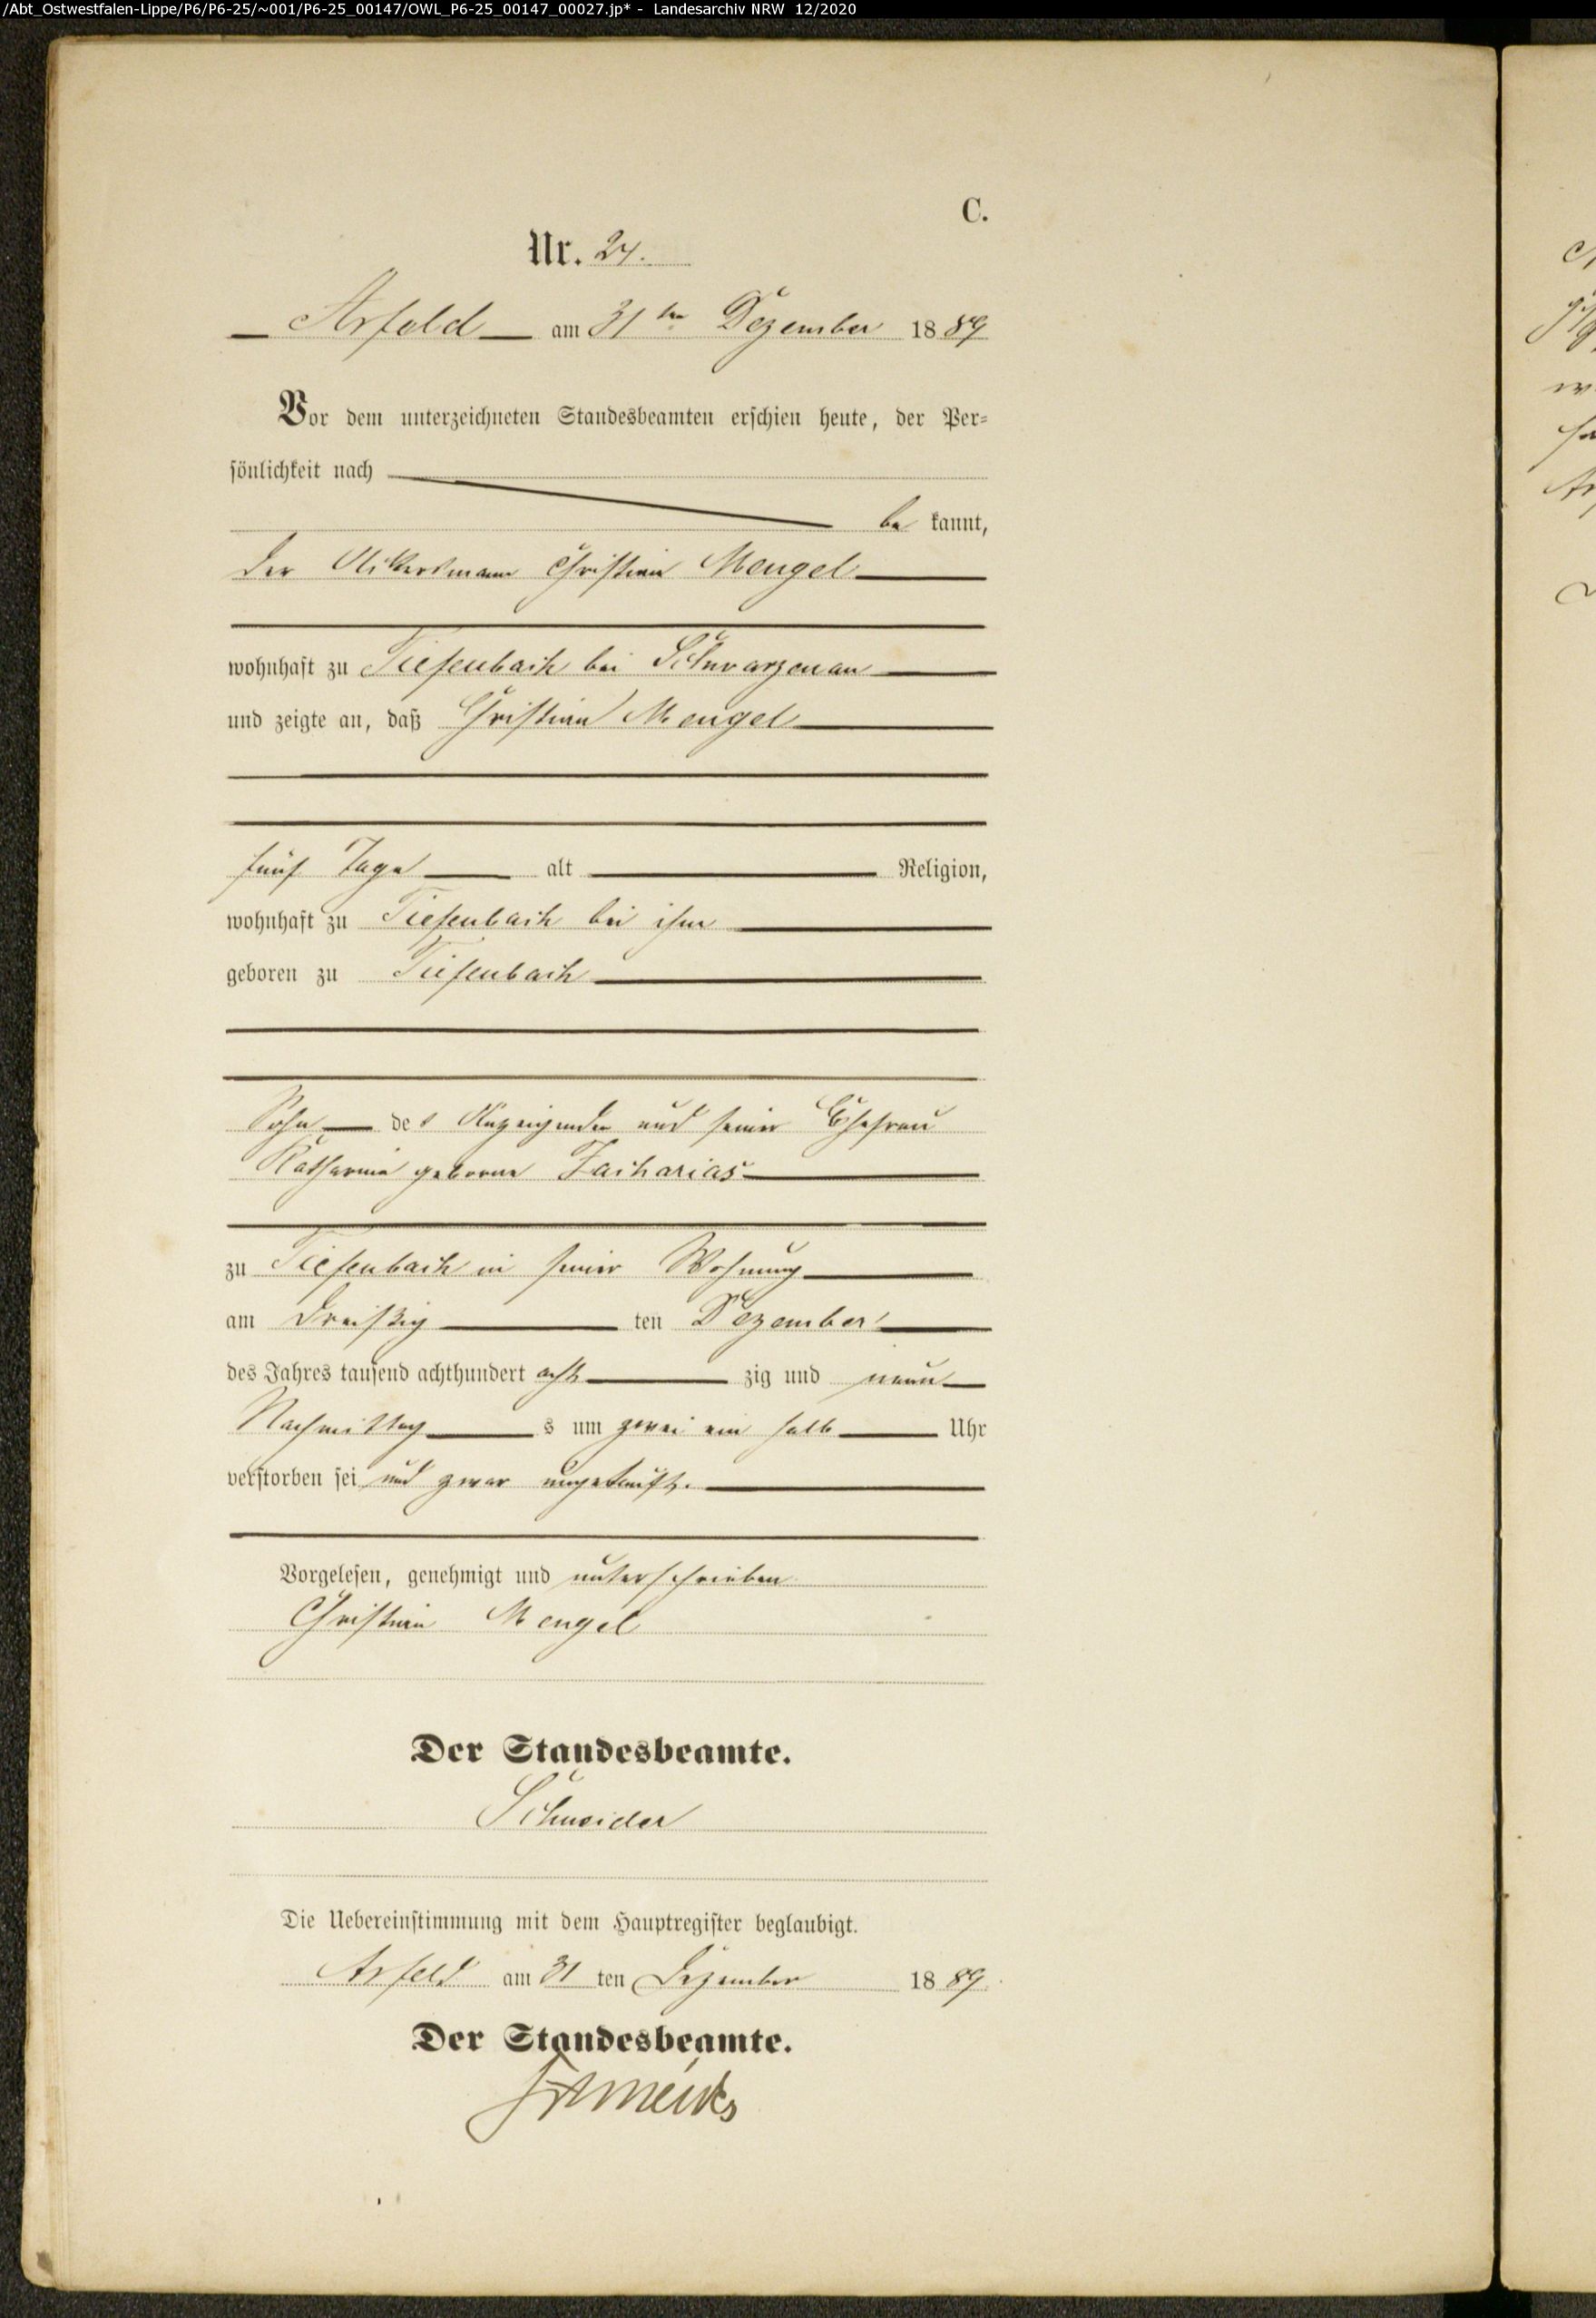 /Abt_Ostwestfalen-Lippe/P6/P6-25/~001/P6-25_00147/OWL_P6-25_00147_00027.jp* - Landesarchiv NRW 12/2020
C.
Nr. 24.
Arfeld am 31ten Dezember 1889
Vor dem unterzeichneten Standesbeamten erschien heute, der Per-
sönlichkeit nach
be kannt,
der Ackersmann Christian Mengel
wohnhaft zu Tiefenbach bei Schwarzenau
und zeigte an, daß Christian Mengel
fünf Tage alt Religion,
wohnhaft zu Tiefenbach bei ihm
geboren zu Tiefenbach
Sohn des Anzeigenden und seiner Ehefrau
Katharine geborne Zacharias
zu Tiefenbach in seiner Wohnung
am dreißig ten Dezember
des Jahres tausend achthundert acht zig und neun
Nachmittag s um zwei ein halb Uhr
verstorben sei und zwar ungetauft.
Vorgelesen, genehmigt und unterschrieben
Christian Mengel
Der Standesbeamte.
Schneider
Die Uebereinstimmung mit dem Hauptregister beglaubigt.
Arfeld am 31 ten Dezember 1889.
Der Standesbeamte.